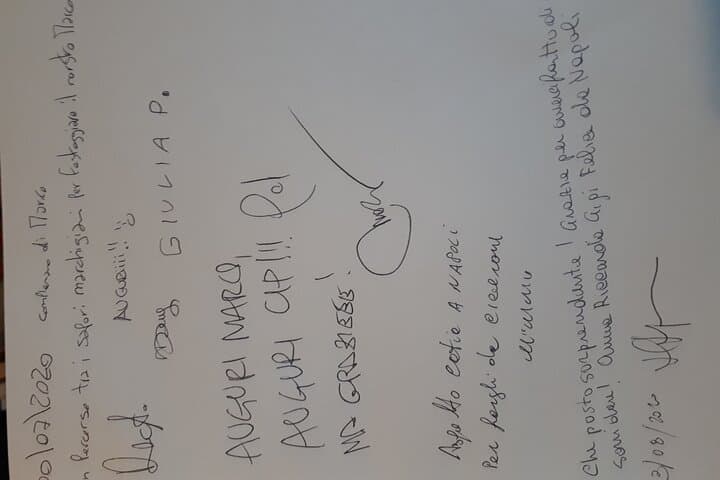 0/07/2020 compleanno di Marco
n percorso tra i sapori marchigiani per festeggiare il nostro Marco
AUGURIII!!!
GIULIA P.
AUGURI MARCO!
AUGURI CIP!!!
MA GRAZIEEEE!
Aspetto Catia A NAPOLI
Per
Mimmo
Che posto sorprendente! Grazie per averci fatto
sorridere! Anna Riccardo Gigi Felia da Napoli
2/08/2020